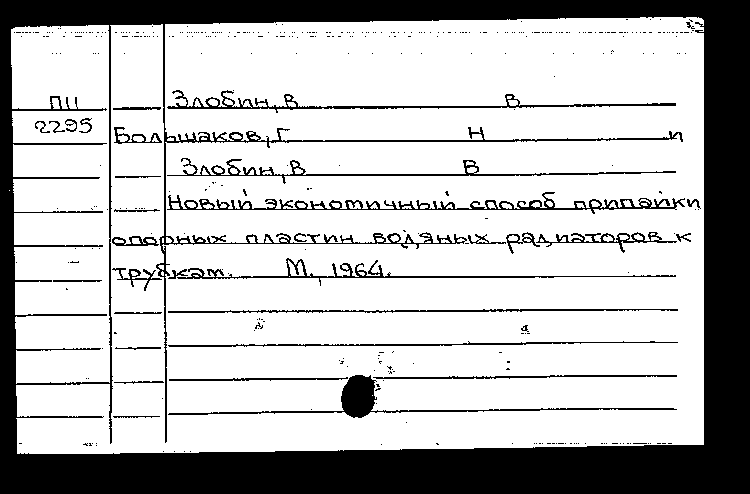 П11 Злобин, В В
2295 Большаков, Г. Н и
Злобин, В В
Новый экономичный способ припайки
опорных пластин водяных радиаторов к
трубкам. М., 1964.